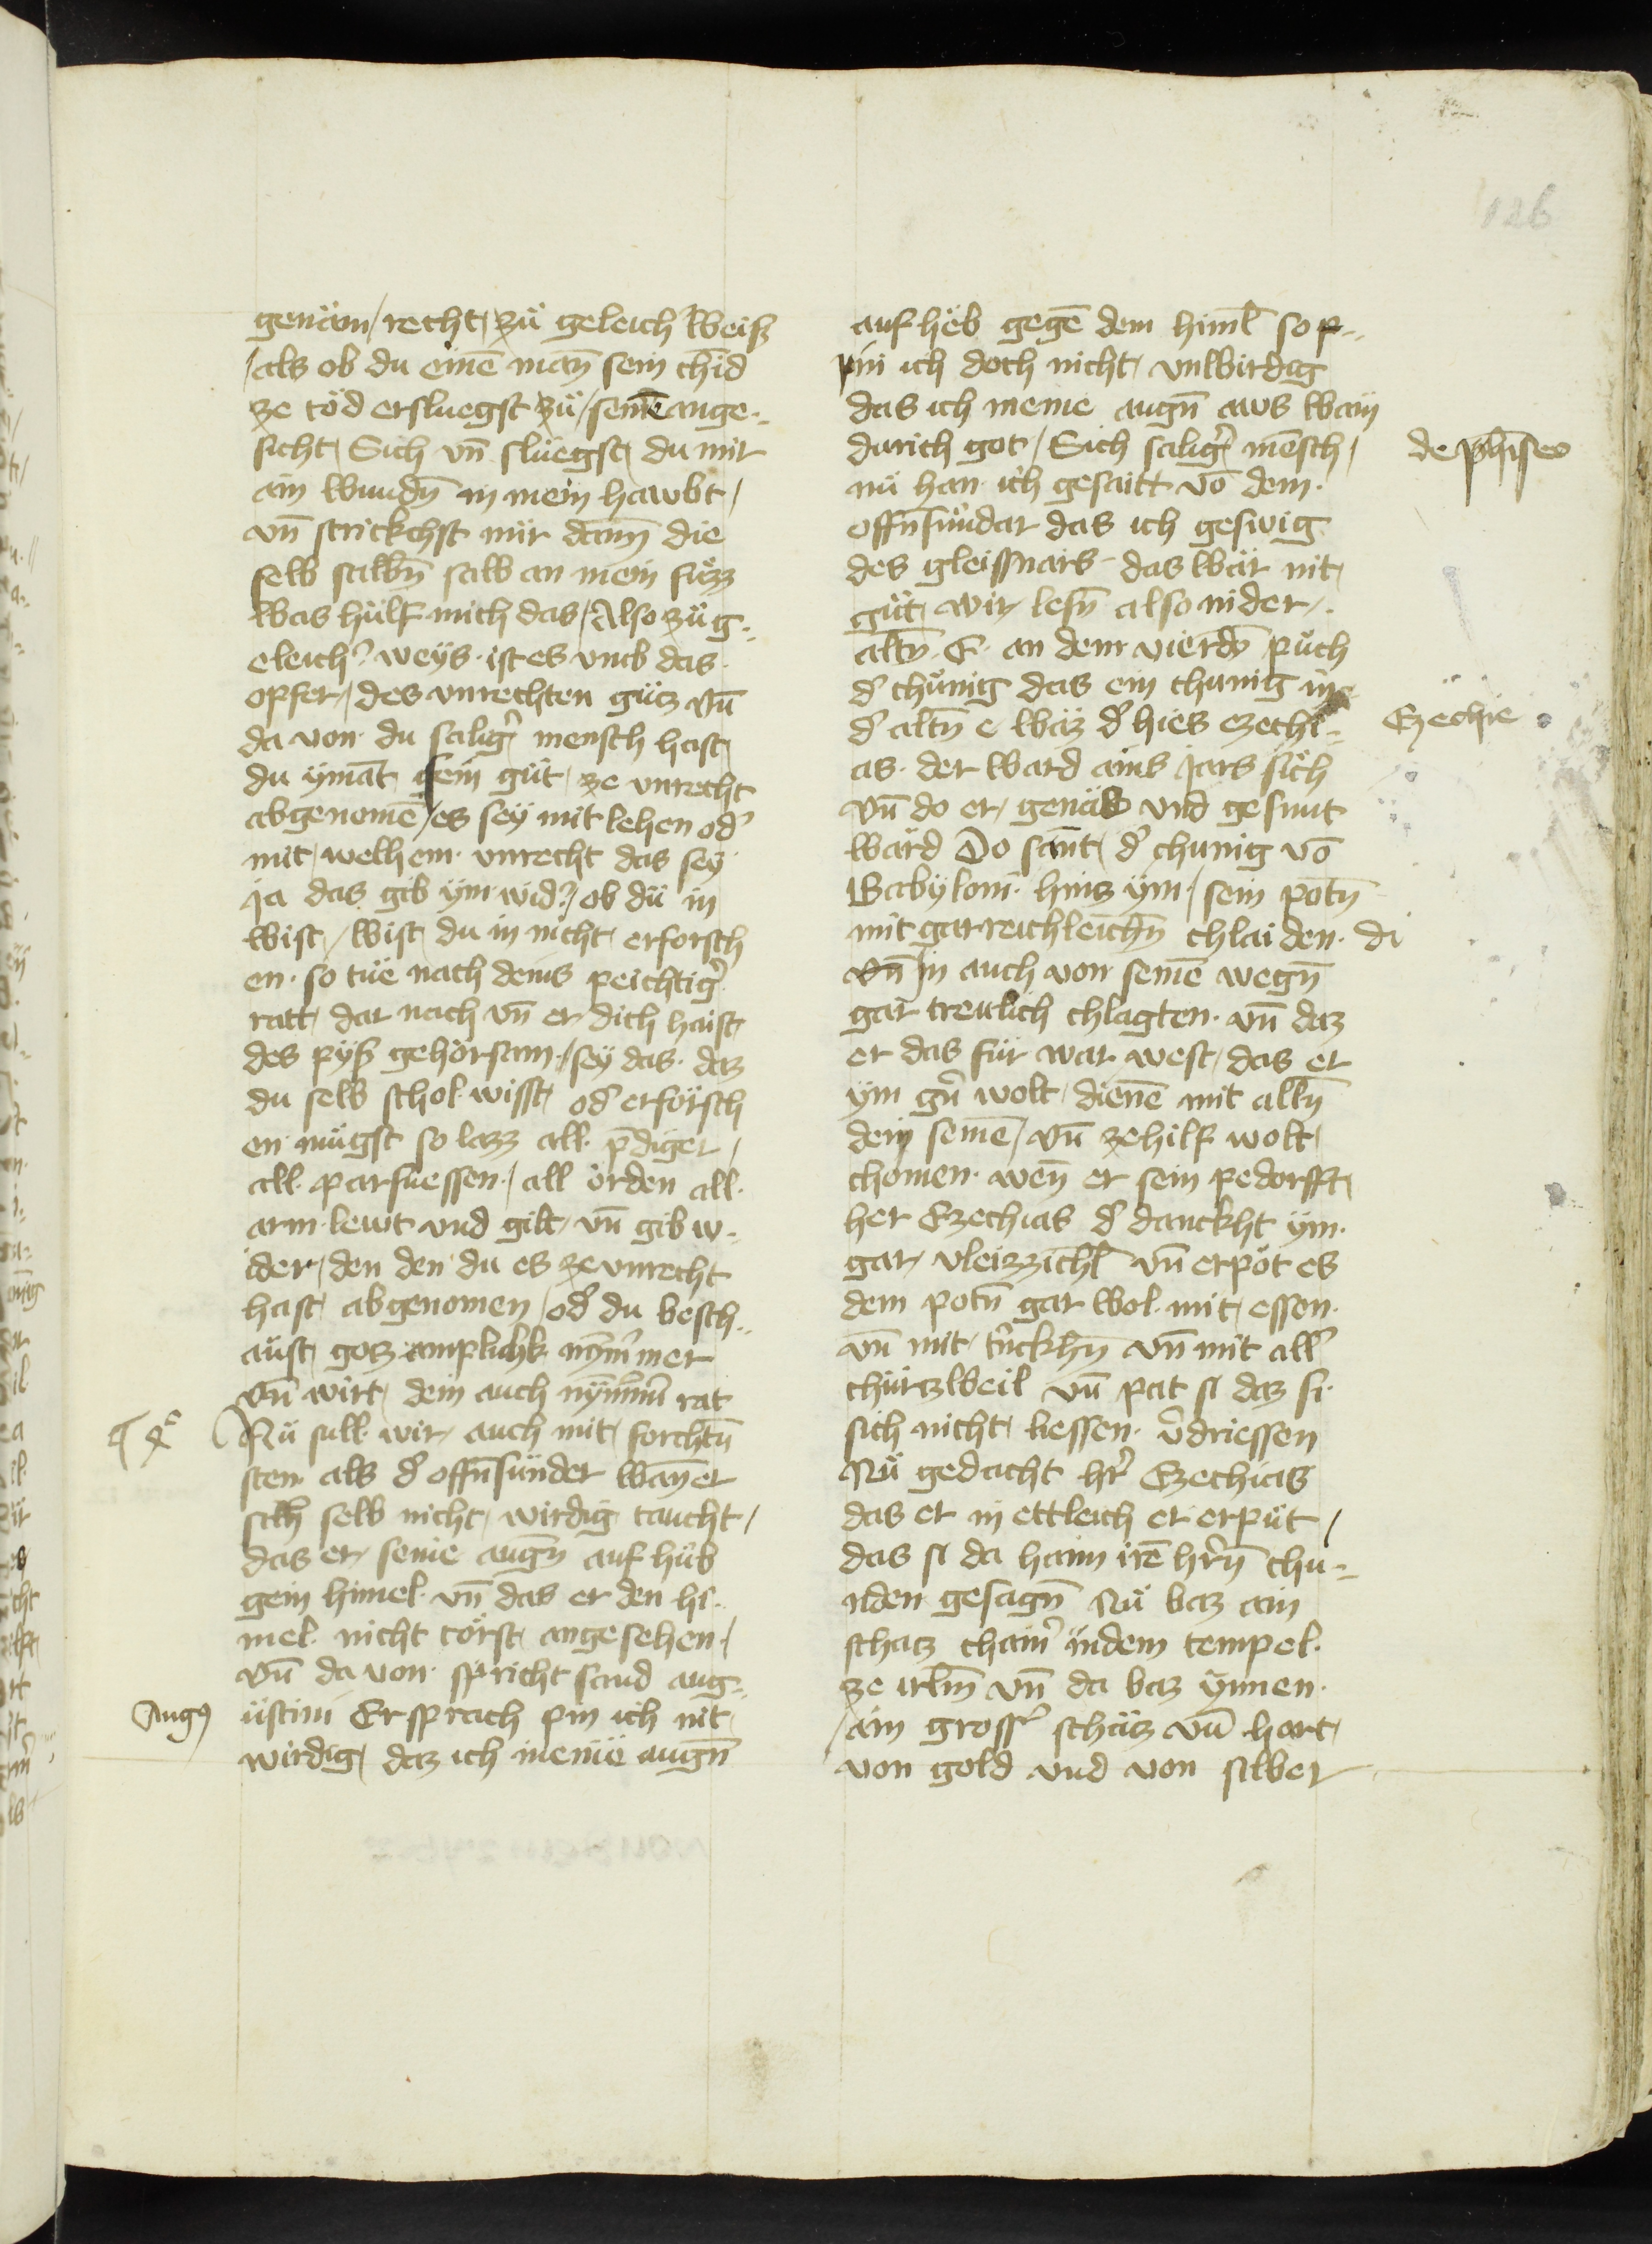 126
genäm / recht zü geleich weiß
/ als ob du einē man̄ sein chīd
ze töd ersluegst zü / seinē ange-
sicht Sich vn̄ slüegst du mir
ain wundn̄ in mein hawbt /
vn̄ strickchst mir dann̄ die
selb salbn̄ salb an mein füzz
was hülf mich das / Also zü g-
eleichˀ weys · ist es vmb das
opfer / des vnrechten güz vn̄
da von du saligˀ mensch hast
du ymāt sein güt ze vnrecht
abgenomē / es sey mit lehen odˀ
mit welhem vnrecht das sey
ja das gib ym widˀ / ob dü in
wist / wist du in nicht erforsch
en · so tüe nach deins peichtigˀ
ratt dar nach vn̄ er dich haist
des pyß gehörsam / sey das · daz
du selb schol wisst odˀ erförsch
en mügst so lazz all p̄diger /
all parfuessen / all örden all
arm lewt vnd gilt vn̄ gib w-
ider / den den du es ze vnrecht
hast abgenomen / odˀ du besch-
aüst goz amplickh nȳmmer
vn̄ wirt dein auch nymmˀ rat
Nü sull wir auch mit forchtn̄
sten als dˀ offn̄sünder wan̄ er
sich selb nicht wirdig taucht /
das er seine augn̄ auf hüb
gein himel vn̄ das er den hi-
mel nicht törst angesehen /
vn̄ da von spricht sand aug-
üstini Er sprach pin ich nit
wirdig daz ich meinë augn̄
Augꝰ
auf heb gegē dem himl̄ so p-
pin ich doch nicht vnwirdig
das ich meine augn̄ aws wain
durich got / Sich saligˀ mēsch /
nü han ich gesaitt vō dem
offn̄sündar das ich geswig
des gleissnärs das wär nit
güt wir lesn̄ also in der
altn̄ E an dem vierdn̄ püch
dˀ chünig das ein chunig in
dˀ altn̄ e waz dˀ hies ezechi-
as · der ward ains jars sich
vn̄ do er genas vnd gesunt
ward Do sānt dˀ chunig vō
Babyloni hinz ym / sein potn̄
mit gar reichleichn̄ chlaiden · di
vn̄ in auch von seinē wegn̄
gar trewlich chlagten · vn̄ daz
er das für war west das er
ym gˀn wolt dienē mit alln̄
dem seinē / vn̄ ze hilf wolt
chomen · wen̄ er sein pedorfft
her Ezechias dˀ danckht ym
gar vleizzichl̄ vn̄ erpöt es
dem potn̄ gar wol mit essen
vn̄ mit tˀnckhn̄ vn̄ mit allˀ
chürzweil vn̄ pat si daz si
sich nicht liessen vˀdriessen
Nü gedacht hˀr Ezechias
das er in ettleich er erpüt /
das si da haim irē hˀrn̄ chu-
nden gesagn̄ Nü waz ain
schaz chamˀ in dem tempel
ze irlm̄ vn̄ da waz ynnen
ain grossˀ schäz vn̄ hort
von gold vnd von silber
de ph̄iseo
Ezechie